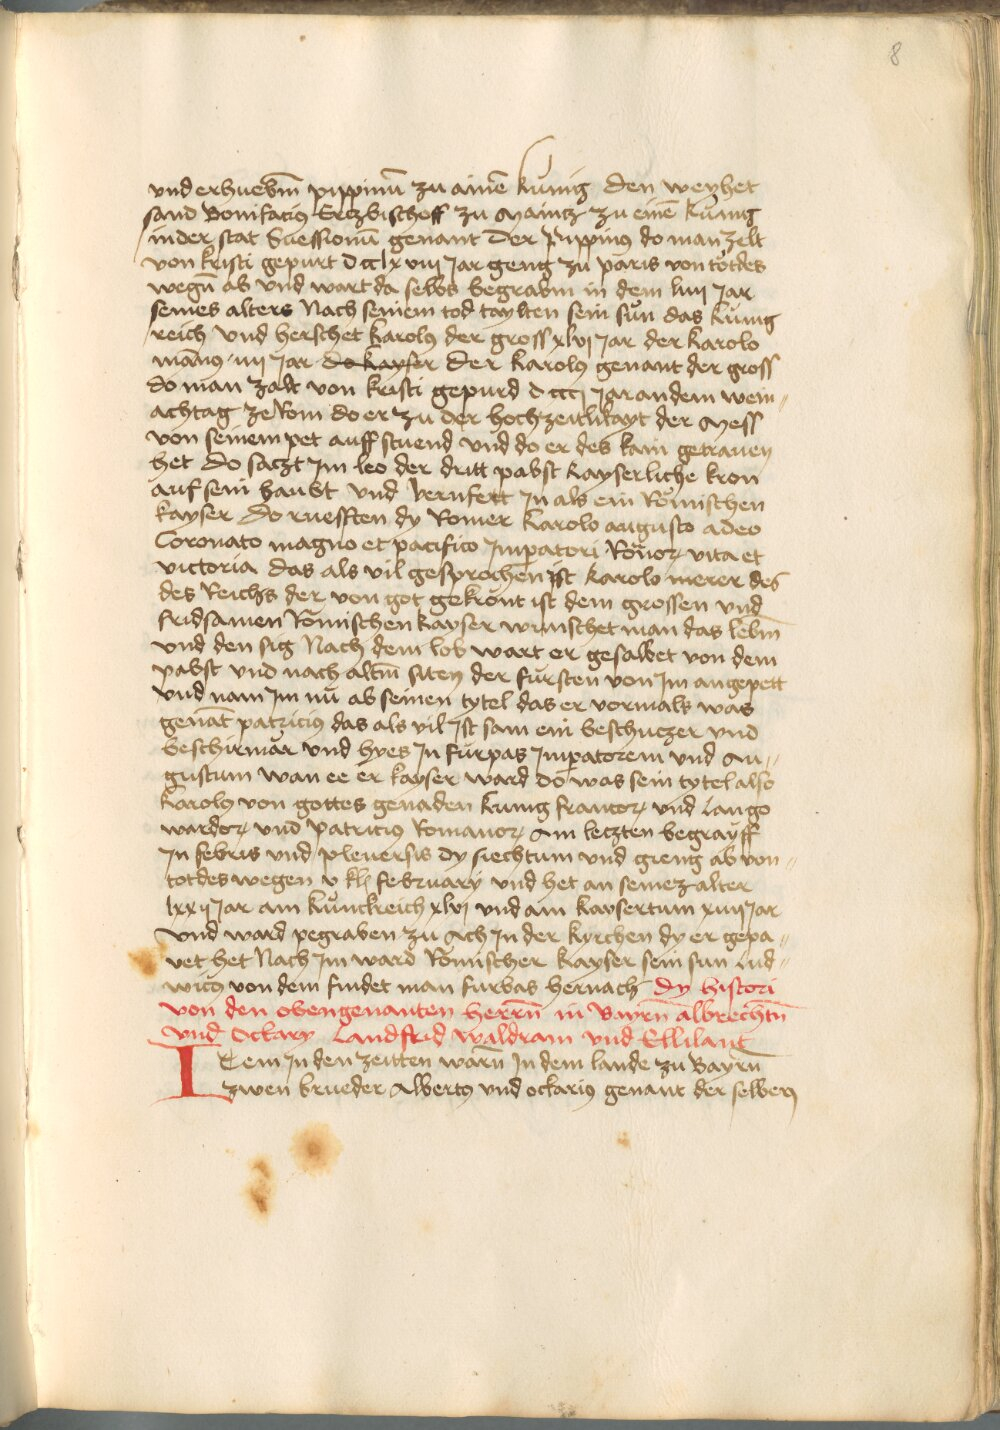 8
und erhuebm̄ pippinū zu ainē kunig den weyhet
sand Bonifacius Erczbischoff zu Maincz zu einē kunig
in der stat Suessionū genant Der Pippinus do man zelt
von kristi gepurt Dcclxviij Jar geng zu paris von todes
wegn̄ ab und wart da selbs begrabm in dem liiij Jar
seines alters Nach seinem tod taylten sein sun das kunig
reich und herschet Karolus der gross xlvj Jar der Karolo
mānus iiij Jar do kayser der Karolus genant der gross
do man zalt von kristi gepurd Dcccj Jar an dem wein-
achtag ze Rom do er zu der hochzeitlikayt der Mess
von seinem pet auff stuend und do er des kain getrauen
het do saczt Im leo der dritt pabst kayserliche kron
auf sein haubt und beruefert In als ein Römischen
kayser Do ruefften dy Romer Karolo augusto a deo
Coronato magno et pacifico Impatori Romor vita et
victoria das als vil gesprochen ist Karolo merer des
des Reichs der von got gekrönt ist dem grossen und
fridsamen Römischen kayser wunschet man das lebm̄
und den sig Nach dem lob wart er gesalbet von dem
pabst und nach altm̄ siten der fursten von Im angepett
und nam Im nū ab seinen tytel das er vormals was
genāt patricius das als vil Ist sam ein beschuczer und
beschirmär und hyes In furpas Impatorem und Au-
gustum wan ee er kayser ward do was sein tytel also
Karolus von gottes genaden kunig francor und Lango
wardor und Patricius Romanor Am letzten begrayff
In febris und pleuersis dy siechtum und gieng ab von
totdes wegen v kl february und het an seinez alter
lxxij Jar am kunckreich xlvj und am kaysertum xiiij Jar
und ward pegraben zu Ach In der kyrchen dy er gepa-
vet het Nach Im ward Römischer kayser sein sun Lud-
wicus von dem findet man furbas hernach Dy histori
von den obengenanten herrn̄ in Bayrn̄ albrechtn̄
und Ockary Landfrid Waldram und Ellilant
Item In den zeitten warn̄ In dem lande zu Bayrn̄
zwen brueder Albertus und ockarius genant der selben